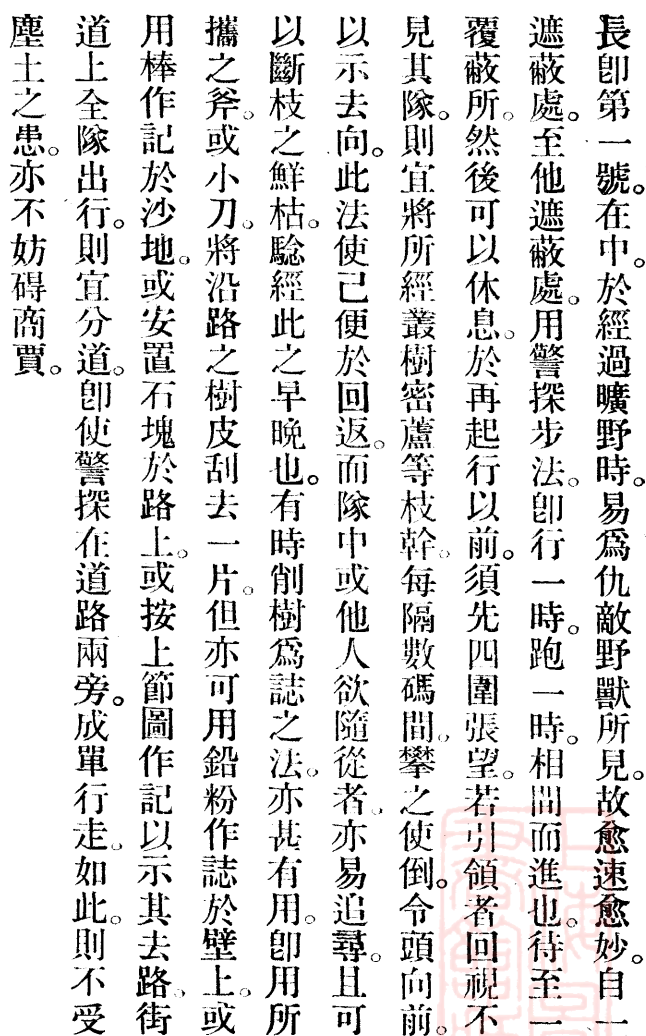 長卽第一號。在中。於經過曠野時。易爲仇敵野獸所見。故愈速愈妙。自一
遮蔽處。至他遮蔽處。用警探步法。卽行一時。跑一時。相間而進也。待至一
覆蔽所。然後可以休息。於再起行以前。須先四圍張望。若引領者回視不
見其隊。則宜將所經叢樹密蘆等枝幹。每隔數碼間。攀之使倒。令頭向前。
以示去向。此法使己便於回返。而隊中或他人欲隨從者。亦易追尋。且可
以斷枝之鮮枯。騐經此之早晚也。有時削樹爲誌之法。亦甚有用。卽用所
攜之斧。或小刀。將沿路之樹皮刮去一片。但亦可用鉛粉作誌於壁上。或
用棒作記於沙地。或安置石塊於路上。或按上節圖作記以示其去路。街
道上全隊出行。則宜分道。卽使警探在道路兩旁。成單行走。如此。則不受
塵土之患。亦不妨碍商賈。